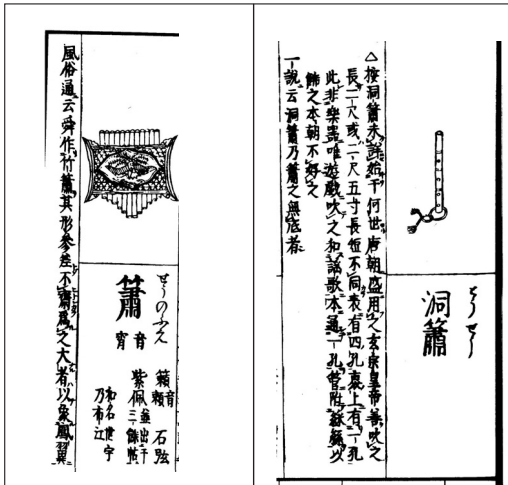 とうせう
洞簫
△按洞簫未詳始于何世唐朝盛用之玄宗皇帝善吹之
長二尺或二尺五寸長短不同表有四孔裏上有一孔
此非樂噐唯遊戯吹之和謡歌本通一孔管附綵縧以
餙之本朝不好之
一說云洞簫乃簫之無底者
せうのふえ
簫
音宵
籟 音頼 石弦
紫佩 並出于三餘帖
和名世宇乃布江
風俗通云舜作竹簫其形參差不齋爲之大者以象鳳翼